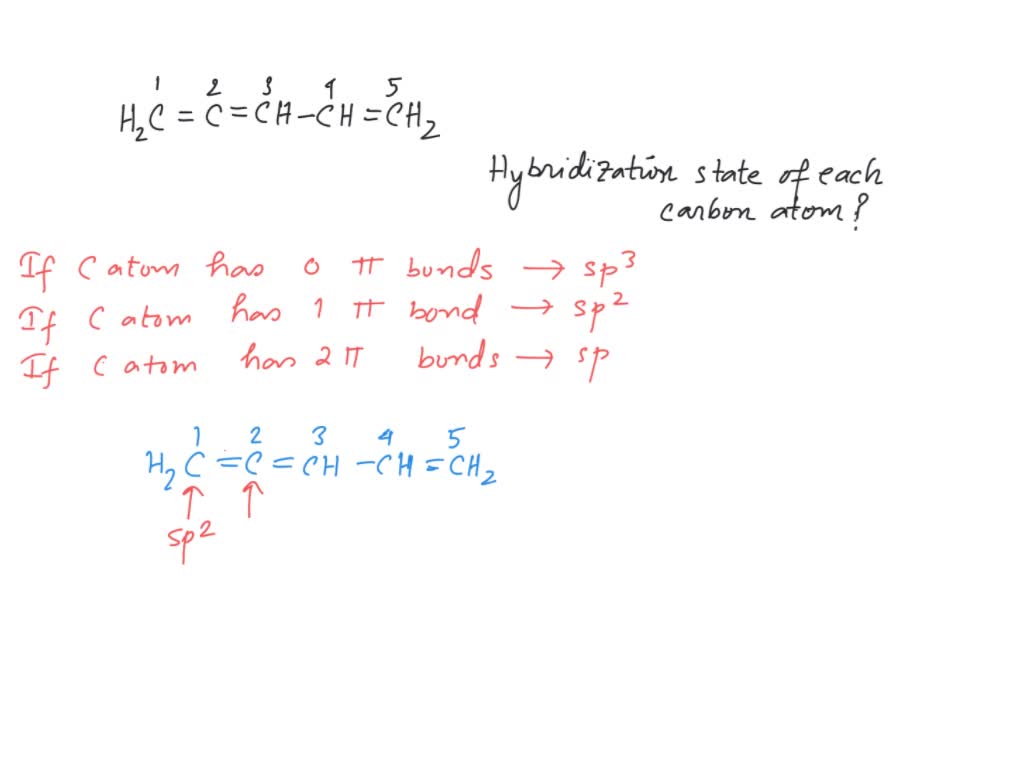 1 2 3 4 5
H2C = C = CH - CH = CH2
Hybridization state of each
carbon atom?
If C atom has 0 π bonds → sp³
If C atom has 1 π bond → sp²
If C atom has 2 π bonds → sp
1 2 3 4 5
H2C = C = CH - CH = CH2
↑ ↑
sp²